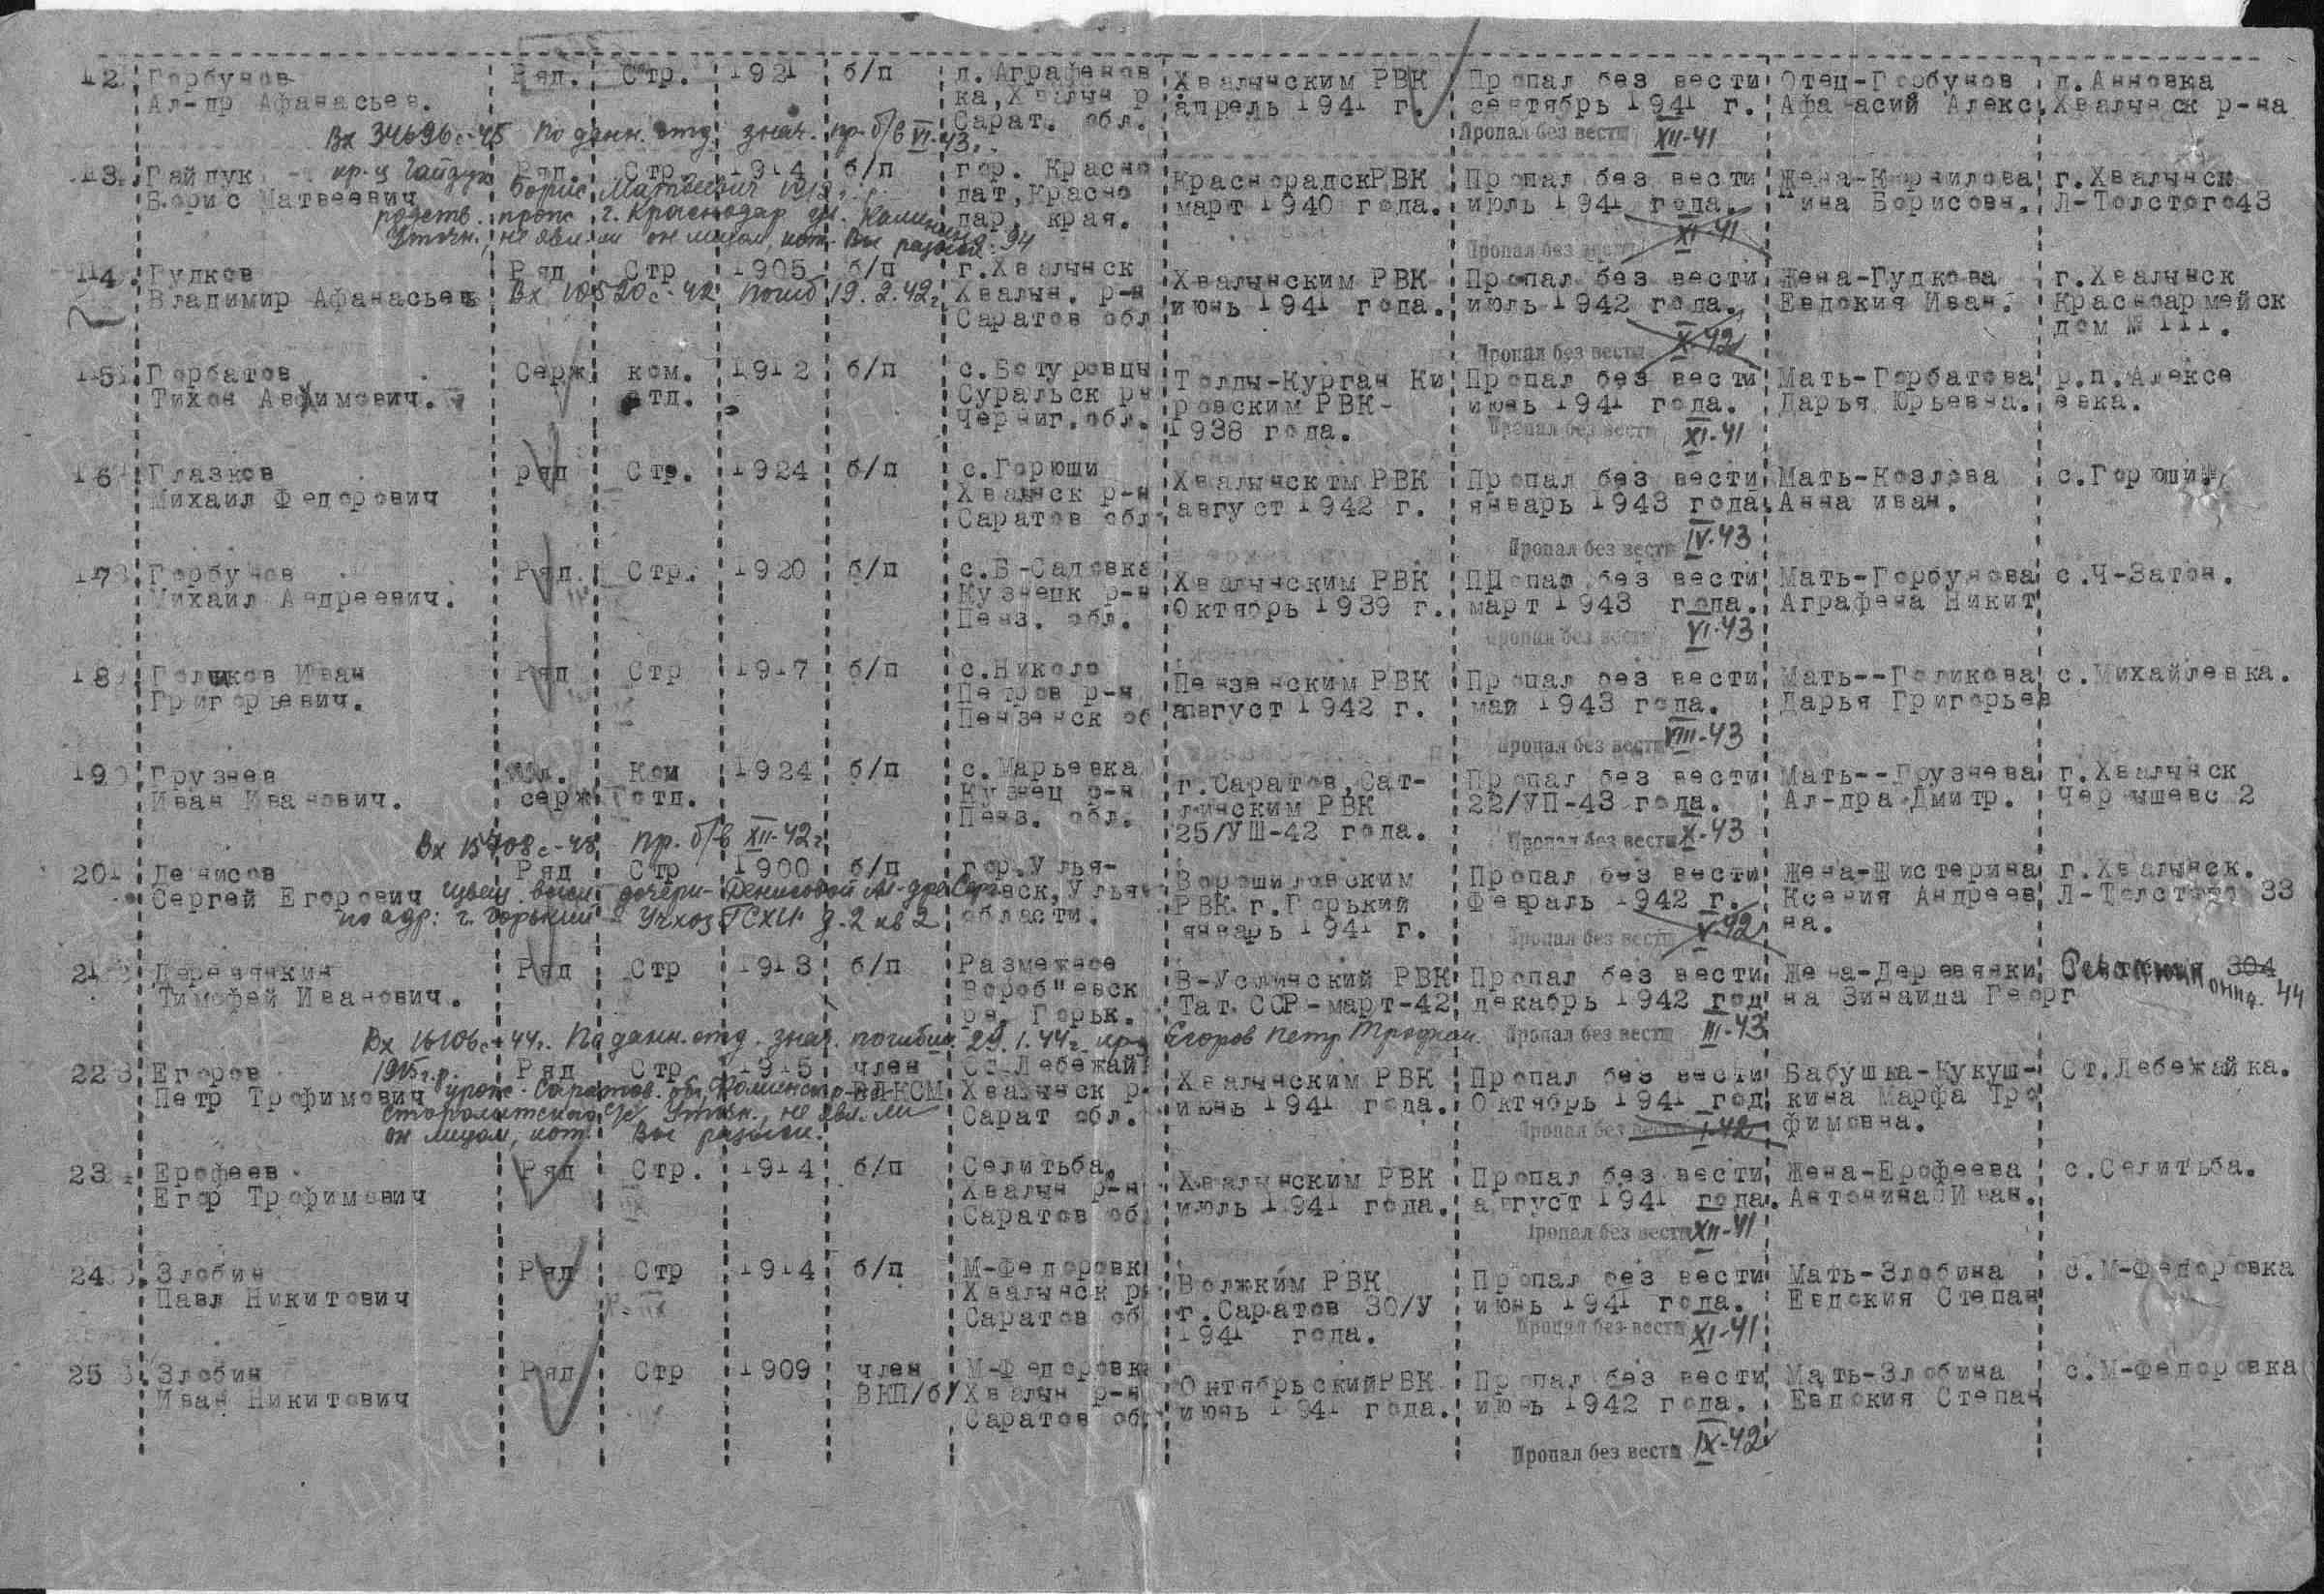 12. Горбунов Ряд. Стр. 1921 б/п д. Аграфенов Хвалынским РВК Пропал без вести Отец-Горбунов д. Анновка
Ал-др Афанасьев. ка, Хвалын р апрель 1941 г. сентябрь 1941 г. Афанасий Алекс. Хвалынск р-на
Сарат. обл. Пропал без вести XII-41
Вх 34696с-45 По данн. отд. знач. пр. б/в VI-43.
13. Гайдук кр-ц Гайдук Ряд. Стр. 1914 б/п гор. Красно КрасноградскРВК Пропал без вести Жена-Корнилова г. Хвалынск
Борис Матвеевич Борис Матвеевич дат, Красно март 1940 года. июль 1941 года. Нина Борисовн. Л-Толстого43
родств. прож г. Краснодар ул. Калинин дар, края. Пропал без вести XI-41
Уточн., не явл. ли он лицом, кот. Вы разыск. 94
14. Гудков Ряд Стр 1905 б/п г. Хвалынск Хвалынским РВК Пропал без вести Жена-Гудкова г. Хвалынск
Владимир Афанасьев Вх 10520с-42 погиб 19.2.42г. Хвалын. р-н июнь 1941 года. июль 1942 года. Евдокия Иван. Красноармейск
Саратов обл Пропал без вести X-42 дом № 111.
15. Горбатов Серж ком. 1912 б/п с. Ботуровцы Толды-Курган Ки Пропал без вести Мать-Горбатова р.п. Алексе
Тихон Авдимович. отд. Суральск рн ровским РВК- июнь 1941 года. Дарья Юрьевна. евка.
Черниг. обл. 1938 года. Пропал без вести XI-41
16 Глазков ряд Стр. 1924 б/п с. Горюши Хвалынским РВК Пропал без вести Мать-Козлова с. Горюши
Михаил Федорович Хвалнск р-н август 1942 г. январь 1943 года Анна иван.
Саратов обл Пропал без вести IV-43
17 Горбунов Ряд. Стр. 1920 б/п с. Б-Садовка Хвалынским РВК Пропал без вести Мать-Горбунова с. Ч-Затон.
Михаил Андреевич. Кузнецк р-н Октябрь 1939 г. март 1943 года. Аграфена Никит
Пенз. обл. Пропал без вести VI-43
18 Голиков Иван Ряд Стр 1917 б/п с. Николо Пензенским РВК Пропал без вести Мать--Голикова с. Михайлевка.
Григорьевич. Петров р-н август 1942 г. май 1943 года. Дарья Григорьев
Пензенск об Пропал без вести VIII-43
19 Грузнев Мл. Ком 1924 б/п с. Марьевка г. Саратов, Сат- Пропал без вести Мать--Грузнева г. Хвалынск
Иван Иванович. серж отд. Кузнец р-н линским РВК 22/УП-43 года. Ал-дра Дмитр. Чернышевс 2
Пенз. обл. 25/УШ-42 года. Пропал без вести X-43
Вх 15708с-48 пр. б/в XII-42г
20 Денисов Ряд Стр 1900 б/п гор. Улья- Ворошиловским Пропал без вести Жена-Шистерина г. Хвалынск.
Сергей Егорович дочери-Денисовой Ал-дре Серг. новск, Улья РВК г. Горький Февраль 1942 г. Ксения Андреев Л-Толстого 33
по адр: г. Горький - Учхоз ГСХИ д. 2 кв 2 области. январь 1941 г. Пропал без вести V-42 на.
21 Деревянкин Ряд Стр 1913 б/п Размежное В-Услинский РВК Пропал без вести Жена-Деревянки 304
Тимофей Иванович. Вороб"евск Тат. ССР-март-42 декабрь 1942 год на Зинаида Георг 44
рн. Горьк. Пропал без вести III-43
Вх 16106с-44г. По данн. отд. знач. погибш. 29.1.44г. кр-ц Егоров Петр Трофим.
22 Егоров 1915г.р. Ряд Стр 1915 член Ст-Лебежай Хвалынским РВК Пропал без вести Бабушка-Кукуш- Ст. Лебежайка.
Петр Трофимович урож. Саратов. обл, ВЛКСМ Хвалынск р- июнь 1941 года. Октябрь 1941 год кина Марфа Тро
Уточн., не явл. ли Сарат обл. Пропал без вести I-42 фимовна.
он лицом, кот. Вы разыск.
23 Ерофеев Ряд Стр. 1914 б/п Селитьба, Хвалынским РВК Пропал без вести Жена-Ерофеева с. Селитьба.
Егор Трофимович Хвалын р-н июль 1941 года. август 1941 года. Антонина Иван.
Саратов об Пропал без вести XII-41
24 Злобин Ряд Стр 1914 б/п М-Федоровк Волжким РВК Пропал без вести Мать-Злобина с. М-Федоровка
Павл Никитович Хвалынск р г. Саратов 30/У июнь 1941 года. Евдокия Степан
Саратов об 1941 года. Пропал без вести XI-41
25 Злобин Ряд Стр 1909 член М-Федоровк ОктябрьскийРВК Пропал без вести Мать-Злобина с. М-Федоровка
Иван Никитович ВКП/б/ Хвалын р-н июнь 1941 года. июнь 1942 года. Евдокия Степан
Саратов об Пропал без вести IX-42